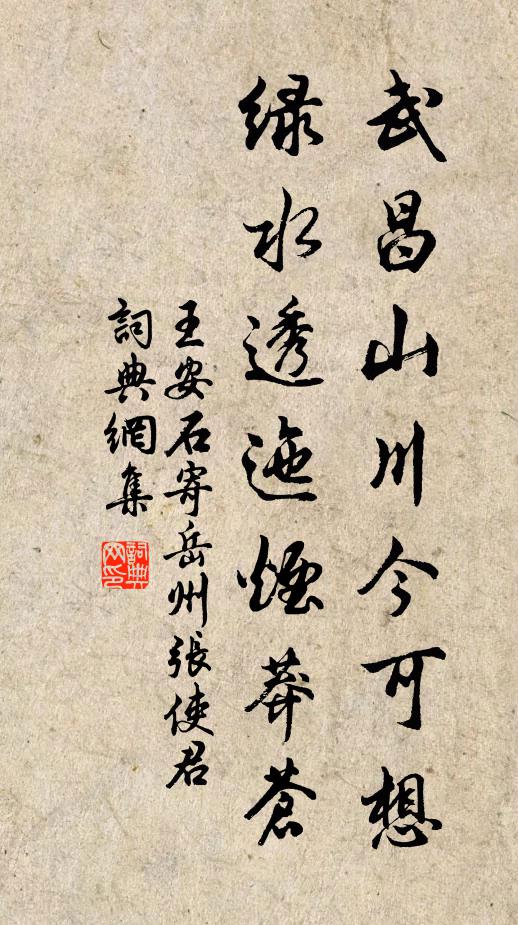 武昌山川今可想
綠水透迤煙莽蒼
王安石寄岳州張使君
詞典網集
詞典网印